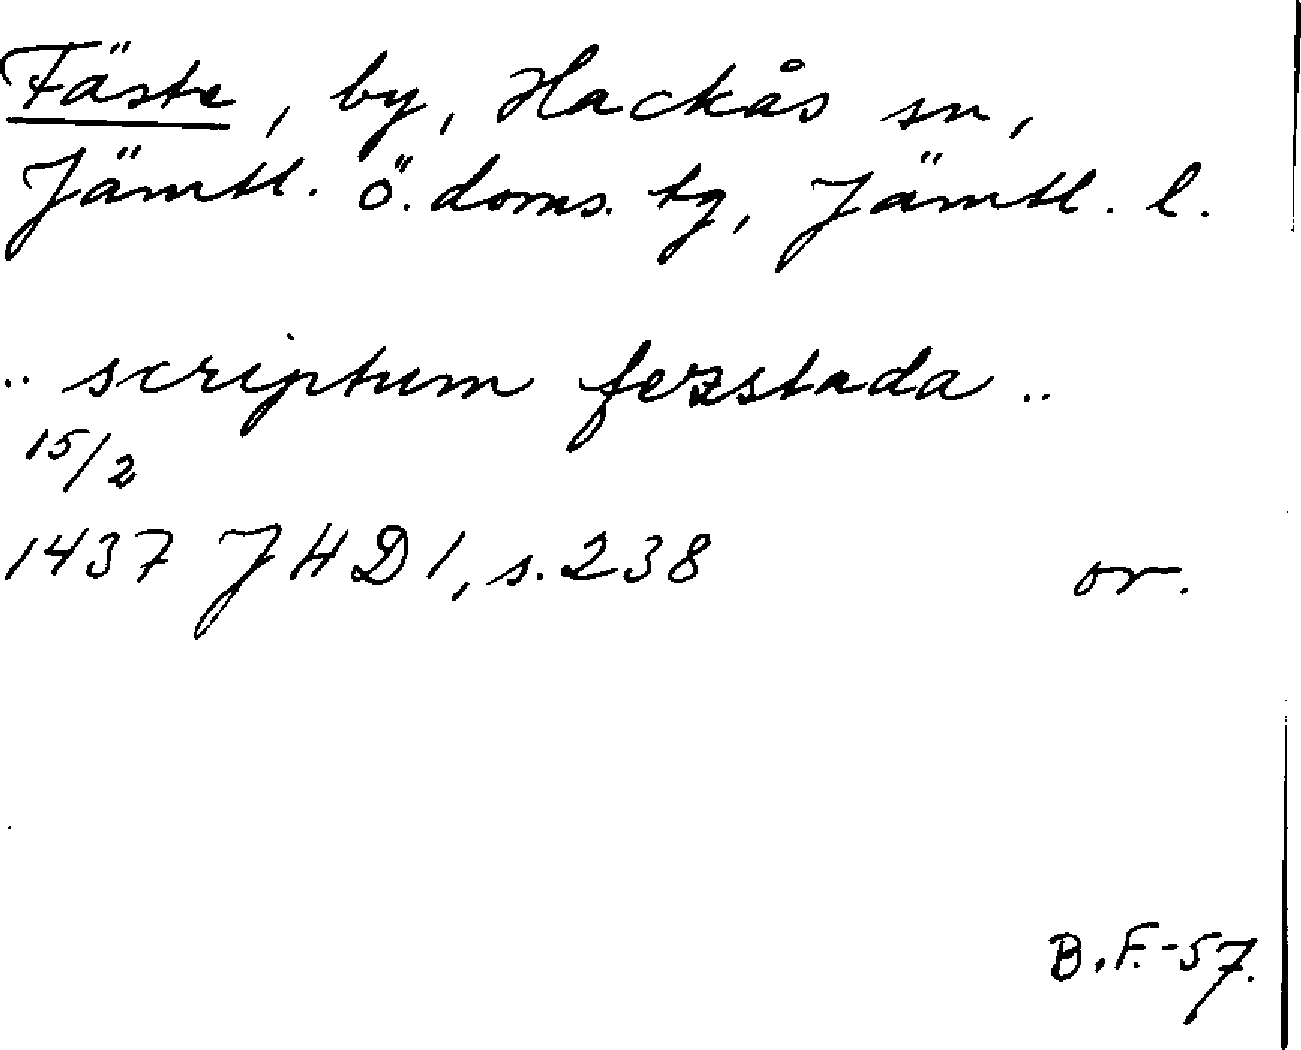 Fäste, by, Hackås sn,
Jämtl. Ö. doms. tg, Jämtl. l.
.. scriptum fezstada ..
15/2
1437 JHD 1, s. 238 or.
B.F.-57.